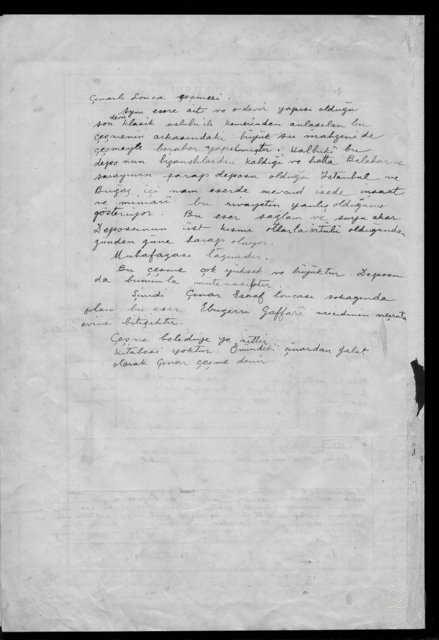 Çınarlı Lonca çeşmesi.
Aynı esere ait ve o devir yapısı olduğu
son devir klasik uslubile kemerinden anlaşılan bu
çeşmenin arkasındaki büyük su mahzeni de
çeşmeyle beraber yapılmıştır. Halbuki bu
deponun bizanslılardan kaldığı ve hatta Belaherne
sarayının şarap deposu olduğu İstanbul ve
Bugaz içi nam eserde mevcud isede inşaat
ve mimari bu rivayetin yanlış olduğunu
gösteriyor. Bu eser sağlam ve suyu akar.
Deposunun üst kısmı otlarla örtülü olduğundan
günden güne harap oluyor.
Muhafazası lazımdır.
Bu çeşme çok yüksek ve büyüktür. Deposu
da bununla mütenasiptir.
Şimdi Çınar Esnaf loncası sokağında
olan bu eser Ebuzerri Gaffari mescidinin meşruta
evine bitişiktir.
Çeşme belediye ye aittir.
Kitabesi yoktur. Önündeki çınardan galat
olarak Çınar çeşme denir.